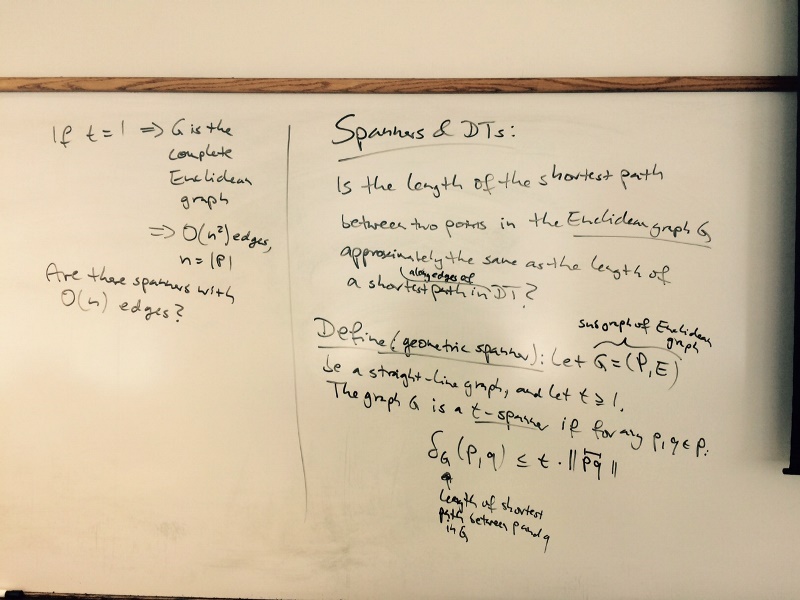 If t=1 ⇒ G is the
complete
Euclidean
graph
⇒ O(n²) edges,
n = |P|
Are there spanners with
O(n) edges?
Spanners & DTs:
Is the length of the shortest path
between two points in the Euclidean graph G
approximately the same as the length of
(along edges of
a shortest path in DT?
subgraph of Euclidean
graph
Define (geometric spanner): Let G=(P,E)
be a straight-line graph, and let t ≥ 1.
The graph G is a t-spanner if for any p,q ∈ P:
δG(p,q) ≤ t · ||pq||
length of shortest
path between p and q
in G